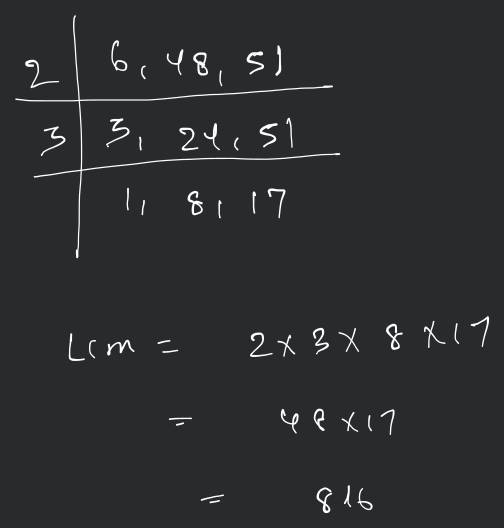 2 | 6, 48, 51
3 | 3, 24, 51
1, 8, 17
Lcm = 2 x 3 x 8 x 17
= 48 x 17
= 816